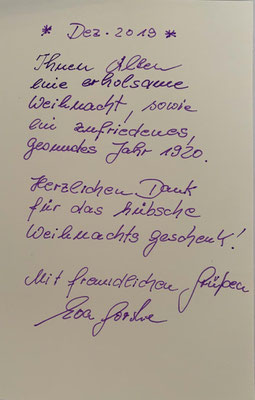 * Dez. 2019 *
Ihnen Allen
eine erholsame
Weihnacht, sowie
ein zufriedenes,
gesundes Jahr 1920.
Herzlichen Dank
für das hübsche
Weihnachts geschenk!
Mit freundlichen Grüßen
Eva